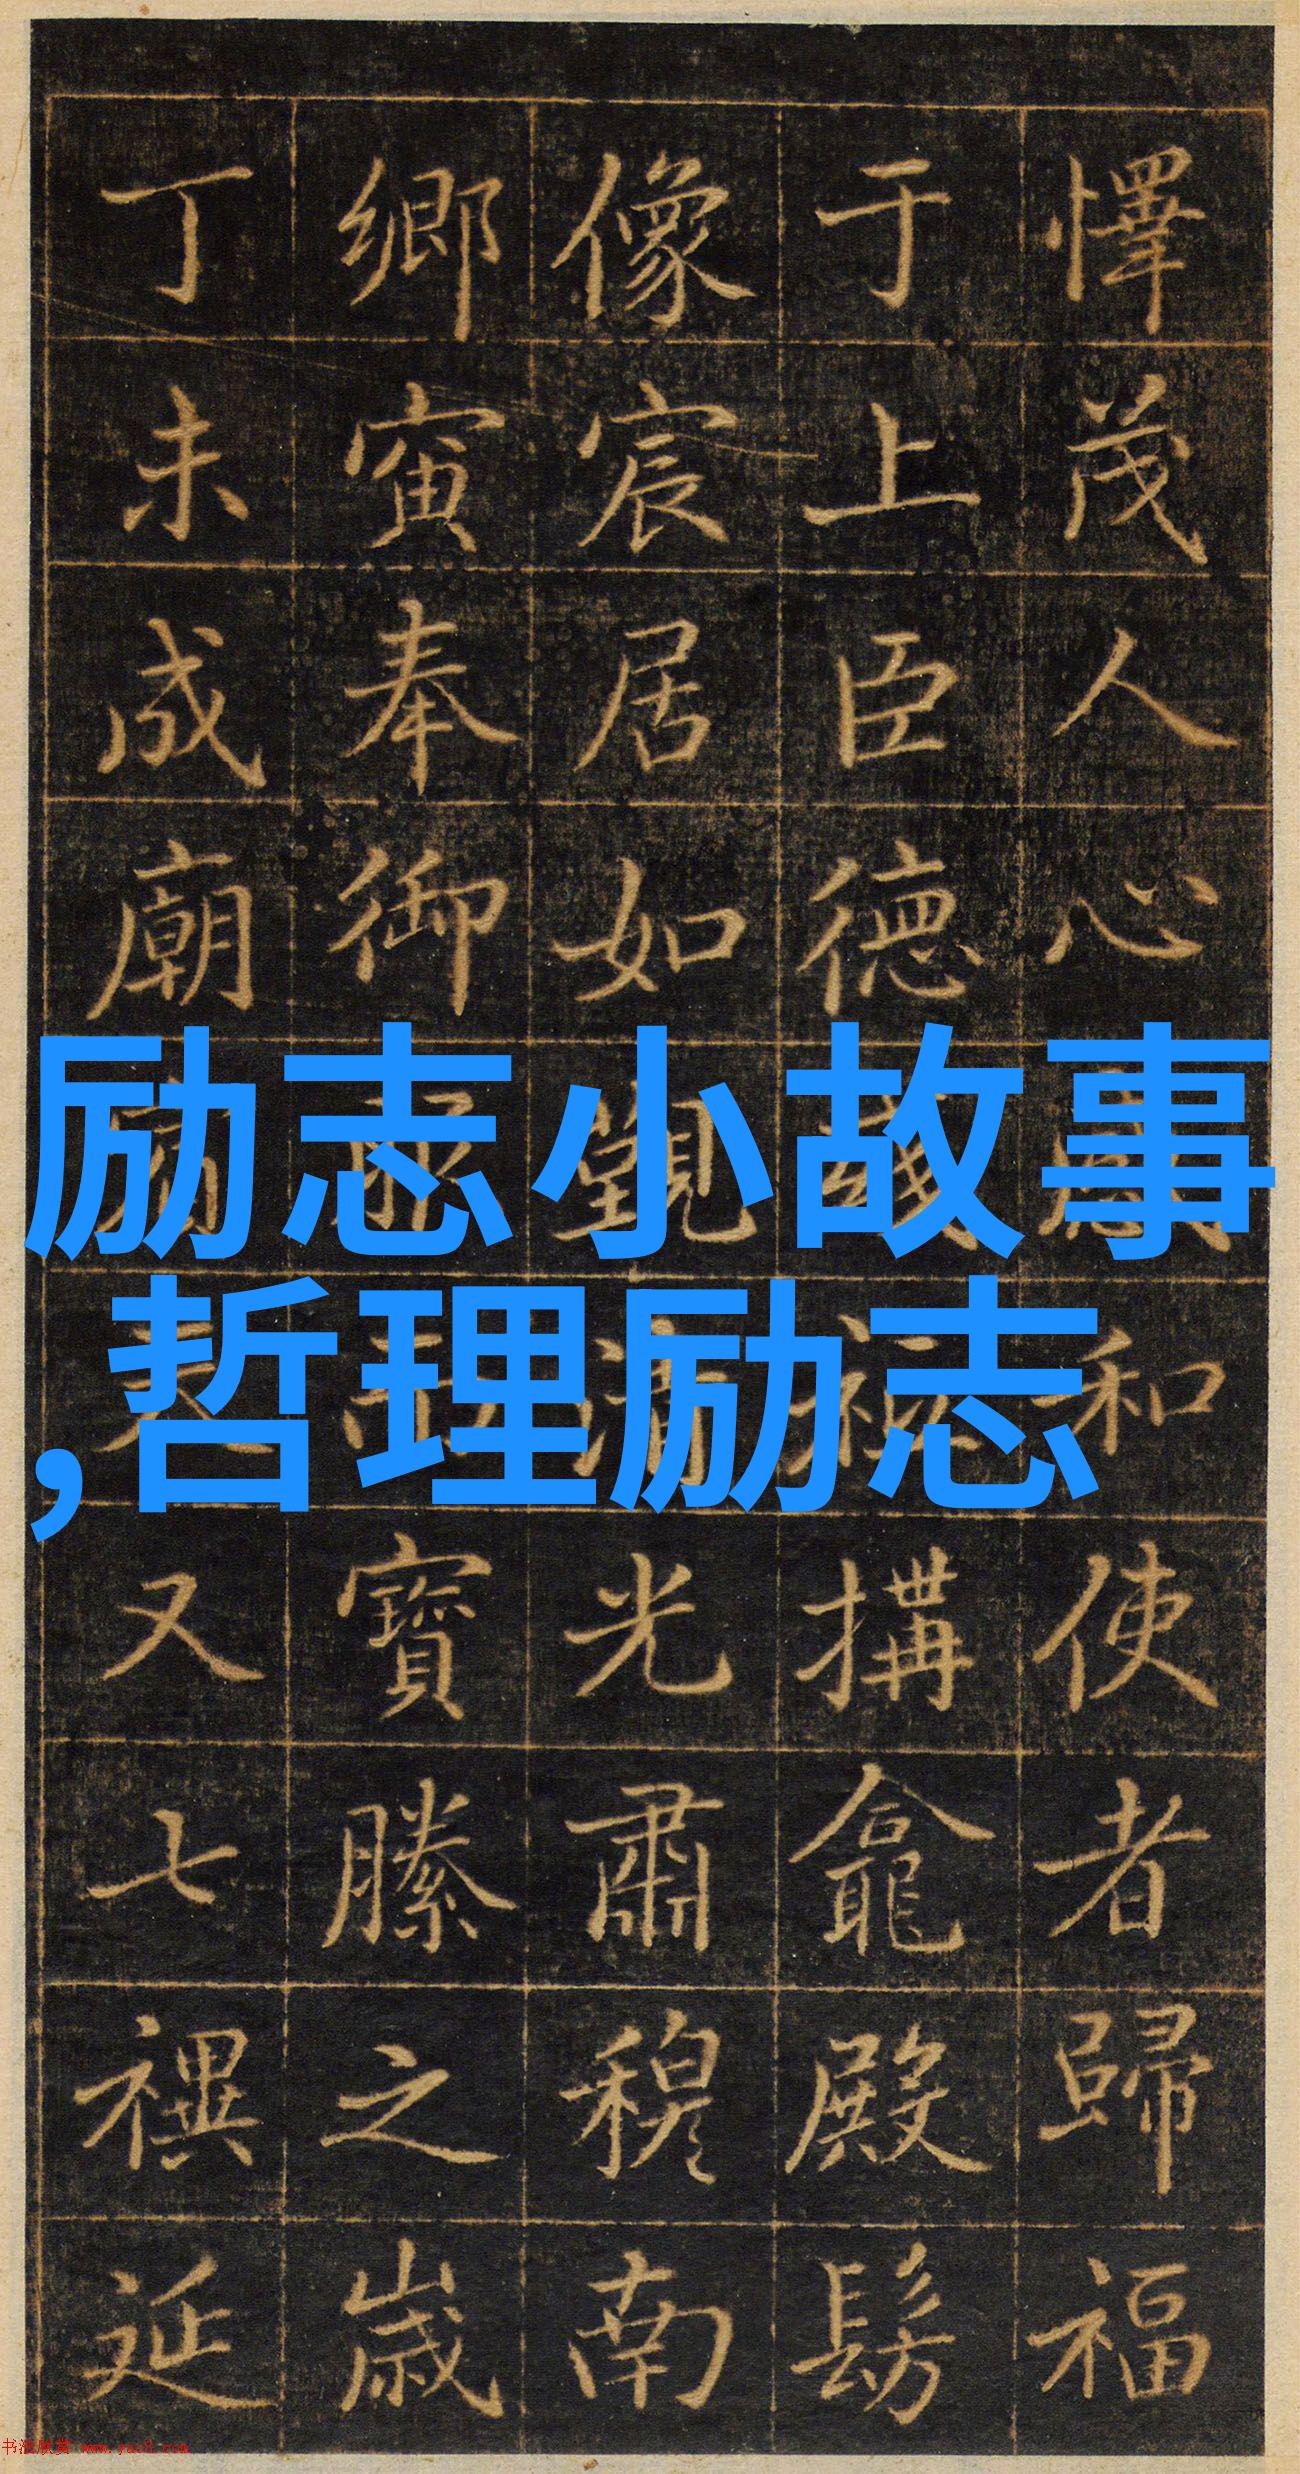 懌茂人心和使者歸福
于上臣德祗搆龕殿髣
像宸居如觀清光肅穆南
鄉寅奉御寶縢之歲
丁未成廟又七禩延
励志小故事
,哲理励志
书法欣赏 www.yac8.com